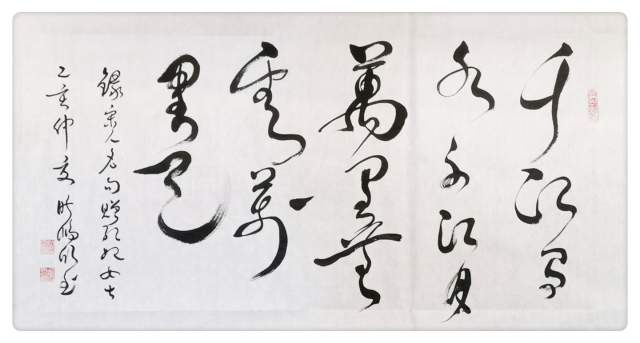 千江有
水千江月
萬里無
雲萬
里天
錄宋人名句贈女士
乙亥仲夏書